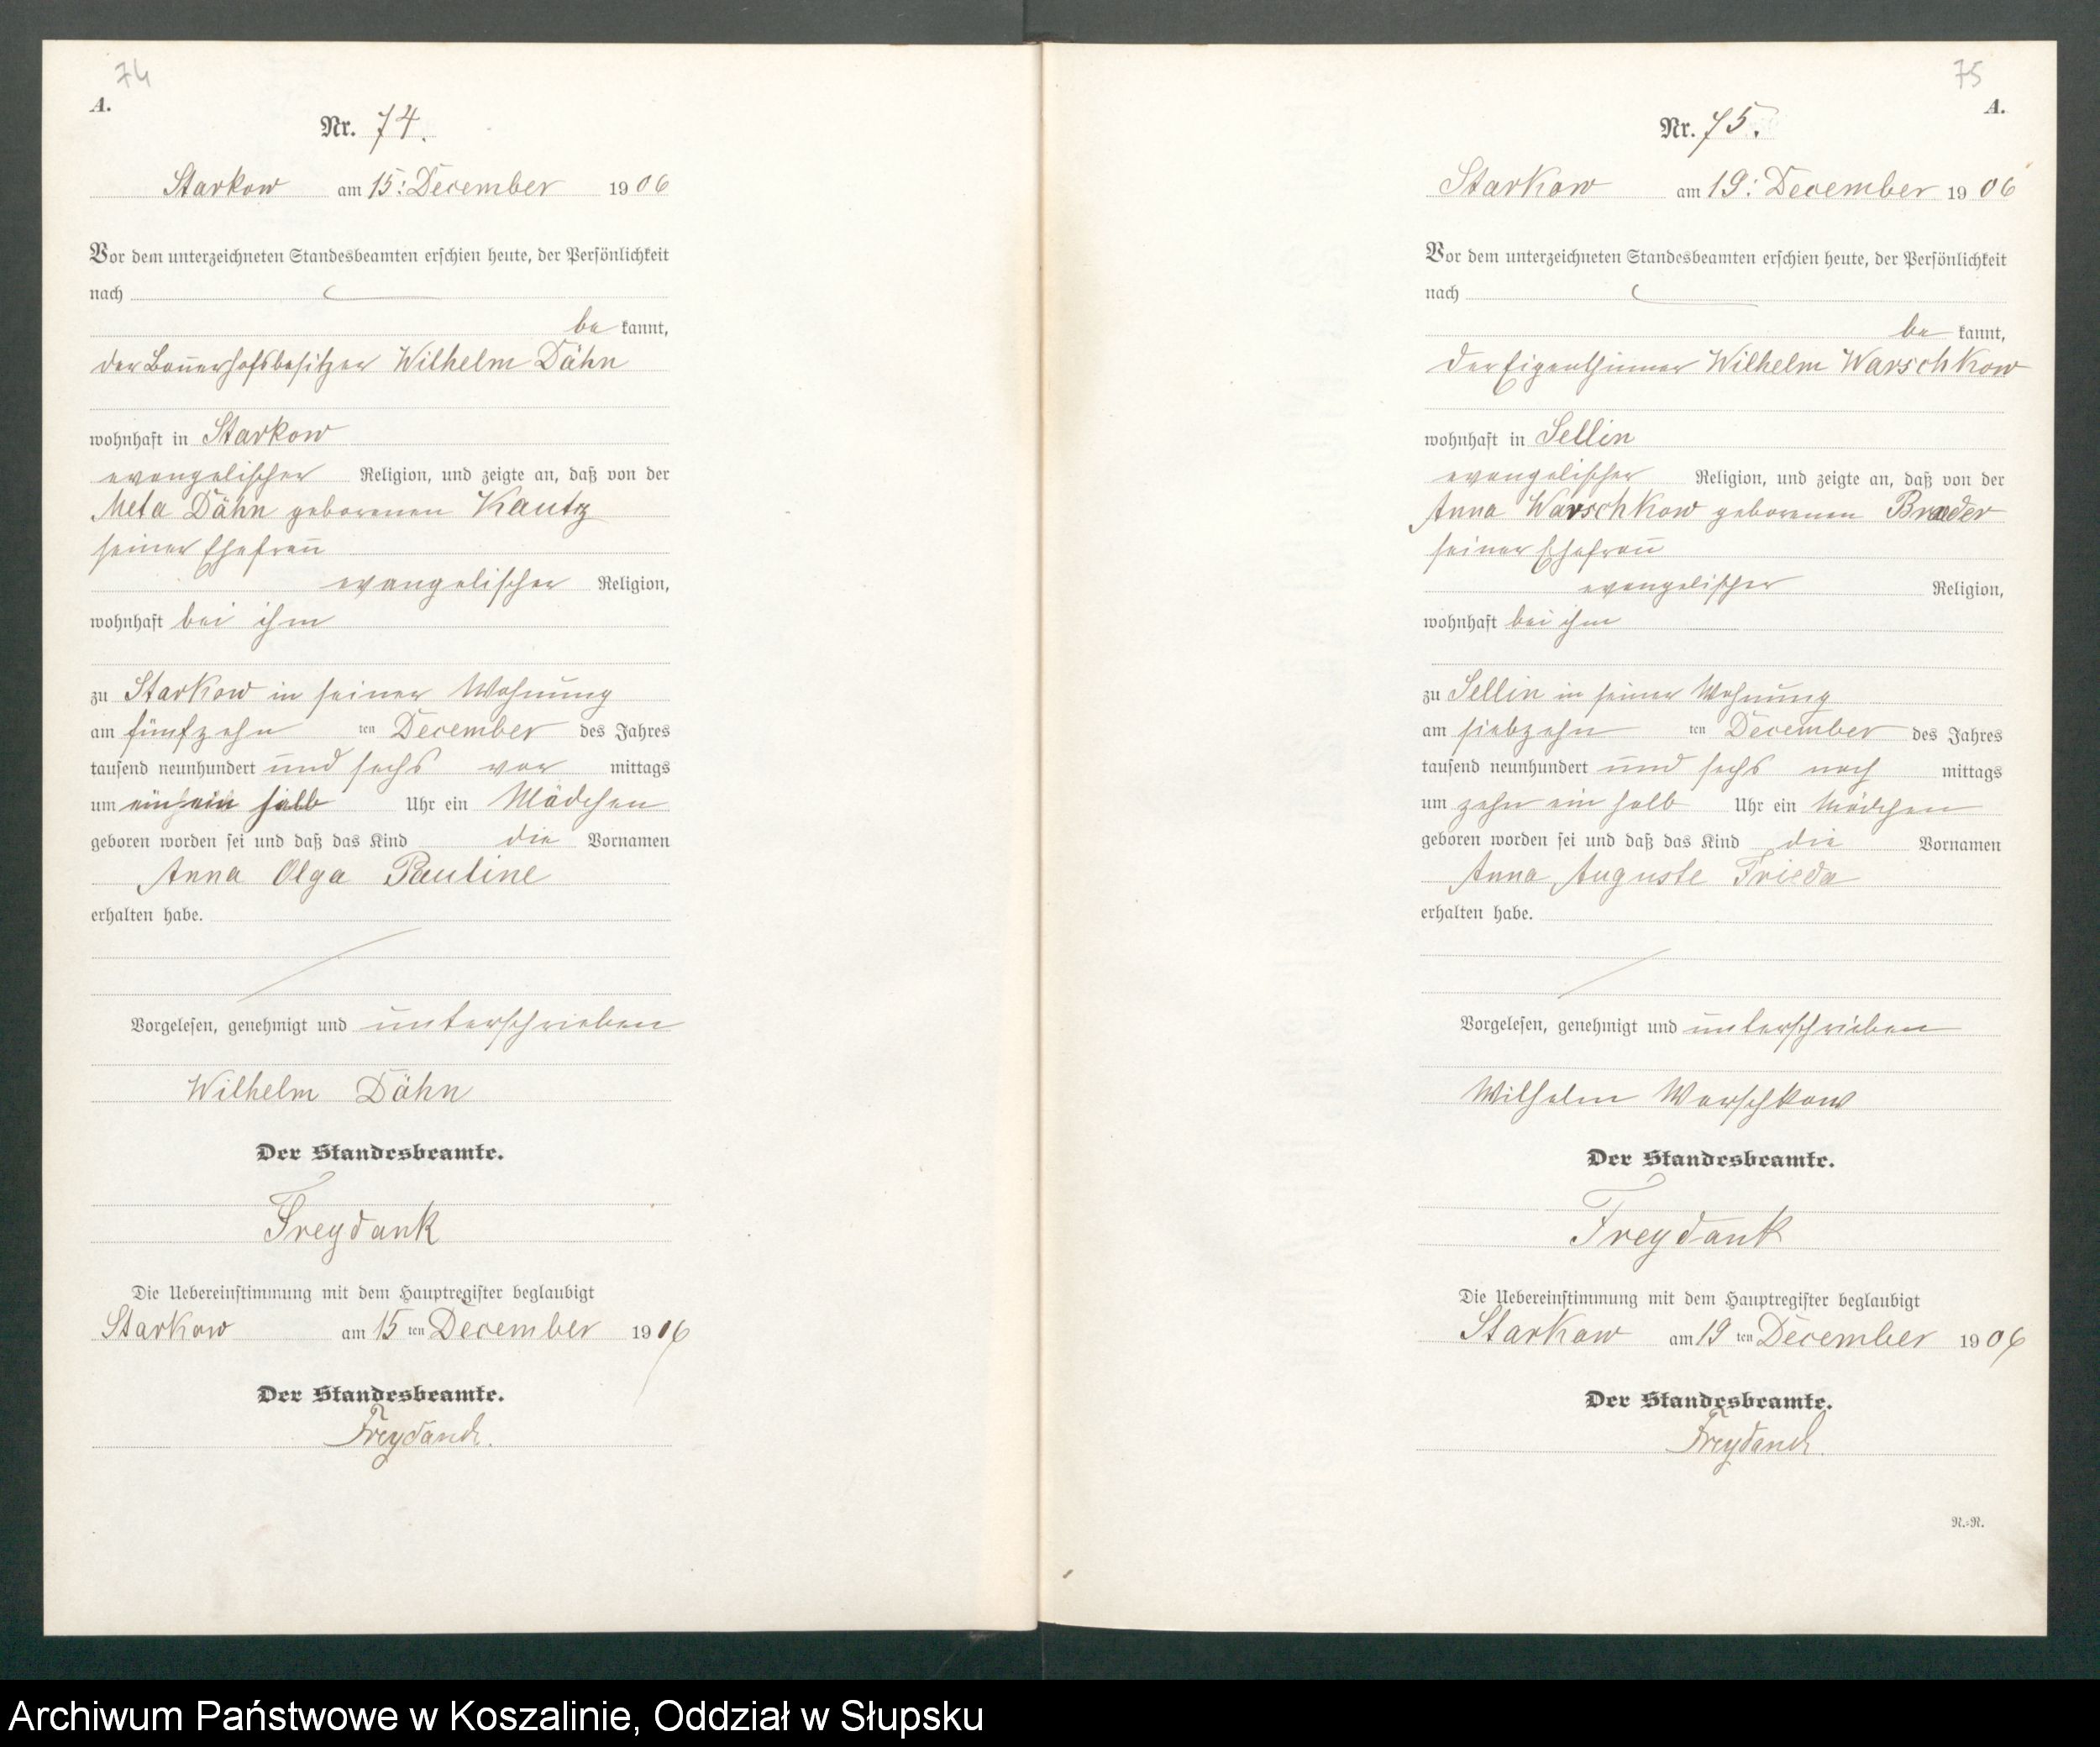 74
A.
Nr. 74.
Starkow am 15: December 1906
Vor dem unterzeichneten Standesbeamten erschien heute, der Persönlichkeit
nach
be kannt,
der Bauerhofsbesitzer Wilhelm Dähn
wohnhaft in Starkow
evangelischer Religion, und zeigte an, daß von der
Meta Dähn geborenen Kautz
seiner Ehefrau
evangelischer Religion,
wohnhaft bei ihm
zu Starkow in seiner Wohnung
am fünfzehn ten December des Jahres
tausend neunhundert und sechs vor mittags
um ein halb Uhr ein Mädchen
geboren worden sei und daß das Kind die Vornamen
Anna Olga Pauline
erhalten habe.
Vorgelesen, genehmigt und unterschrieben
Wilhelm Dähn
Der Standesbeamte.
Freydank
Die Uebereinstimmung mit dem Hauptregister beglaubigt
Starkow am 15 ten December 1906
Der Standesbeamte.
Freydank.
75
A.
Nr. 75.
Starkow am 19: December 1906
Vor dem unterzeichneten Standesbeamten erschien heute, der Persönlichkeit
nach
be kannt,
der Eigenthümer Wilhelm Warschkow
wohnhaft in Sellin
evangelischer Religion, und zeigte an, daß von der
Anna Warschkow geborenen
seiner Ehefrau
evangelischer Religion,
wohnhaft bei ihm
zu Sellin in seiner Wohnung
am siebzehn ten December des Jahres
tausend neunhundert und sechs nach mittags
um zehn ein halb Uhr ein Mädchen
geboren worden sei und daß das Kind die Vornamen
Anna Auguste Frieda
erhalten habe.
Vorgelesen, genehmigt und unterschrieben
Wilhelm Warschkow
Der Standesbeamte.
Freydank
Die Uebereinstimmung mit dem Hauptregister beglaubigt
Starkow am 19 ten December 1906
Der Standesbeamte.
Freydank.
R.-R.
Archiwum Państwowe w Koszalinie, Oddział w Słupsku